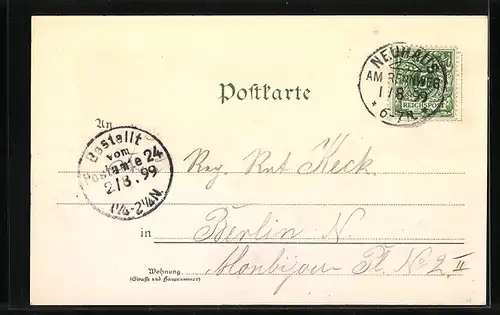 NEUHAUS
AM RENNWEG
1/8 99
* 6-7N.
REICHSPOST
Postkarte
An
Bestellt
vom
Postamte 24
2/8.99
1¼-2¼N.
Reg. Rat Keck.
in Berlin N.
Monbijou Pl. No 2 II
Wohnung
(Strasse und Hausnummer)